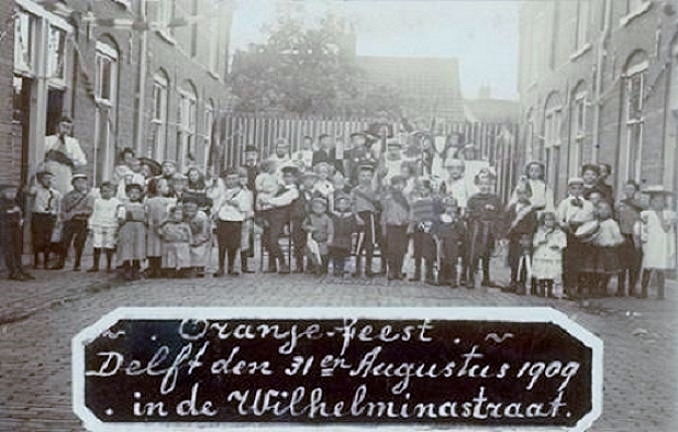 Oranje-feest.
Delft den 31er Augustus 1909
. in de Wilhelminastraat.